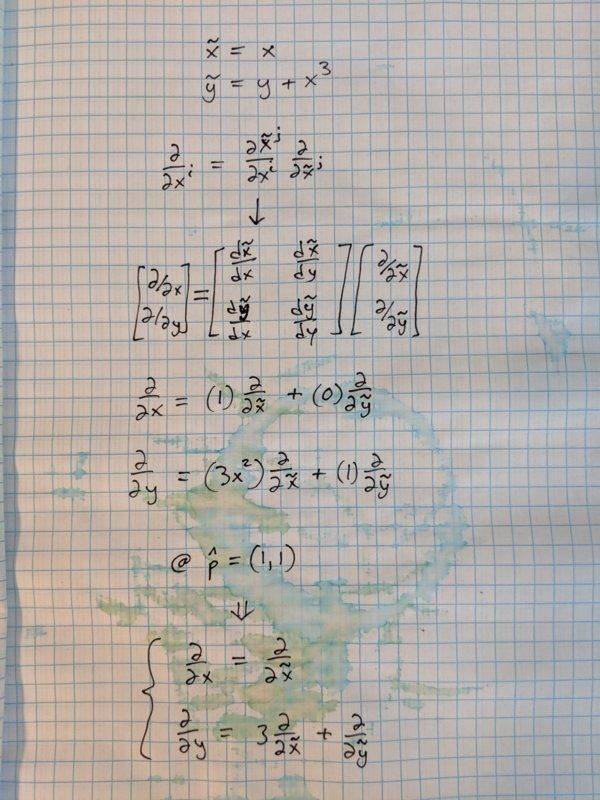 x̃ = x
ỹ = y + x³
∂/∂xⁱ = ∂x̃ʲ/∂xⁱ ∂/∂x̃ʲ
↓
[∂/∂x ; ∂/∂y] = [dx̃/dx dx̃/dy ; dỹ/dx dỹ/dy] [∂/∂x̃ ; ∂/∂ỹ]
∂/∂x = (1) ∂/∂x̃ + (0) ∂/∂ỹ
∂/∂y = (3x²) ∂/∂x̃ + (1) ∂/∂ỹ
@ p̂ = (1,1)
⇓
{ ∂/∂x = ∂/∂x̃
∂/∂y = 3 ∂/∂x̃ + ∂/∂ỹ